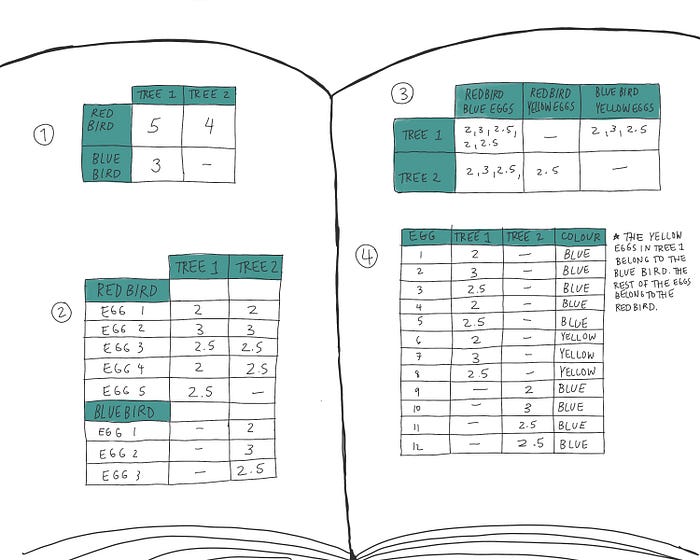 1
TREE 1 TREE 2
RED BIRD 5 4
BLUE BIRD 3 -
2
TREE 1 TREE 2
RED BIRD
EGG 1 2 2
EGG 2 3 3
EGG 3 2.5 2.5
EGG 4 2 2.5
EGG 5 2.5 -
BLUEBIRD
EGG 1 - 2
EGG 2 - 3
EGG 3 - 2.5
3
REDBIRD BLUE EGGS REDBIRD YELLOWEGGS BLUE BIRD YELLOWEGGS
TREE 1 2,3,2.5, 2,2.5 - 2,3,2.5
TREE 2 2,3,2.5, 2.5 -
4
EGG TREE 1 TREE 2 COLOUR
1 2 - BLUE
2 3 - BLUE
3 2.5 - BLUE
4 2 - BLUE
5 2.5 - BLUE
6 2 - YELLOW
7 3 - YELLOW
8 2.5 - YELLOW
9 - 2 BLUE
10 - 3 BLUE
11 - 2.5 BLUE
12 - 2.5 BLUE
* THE YELLOW
EGGS IN TREE 1
BELONG TO THE
BLUE BIRD. THE
REST OF THE EGGS
BELONG TO THE
RED BIRD.